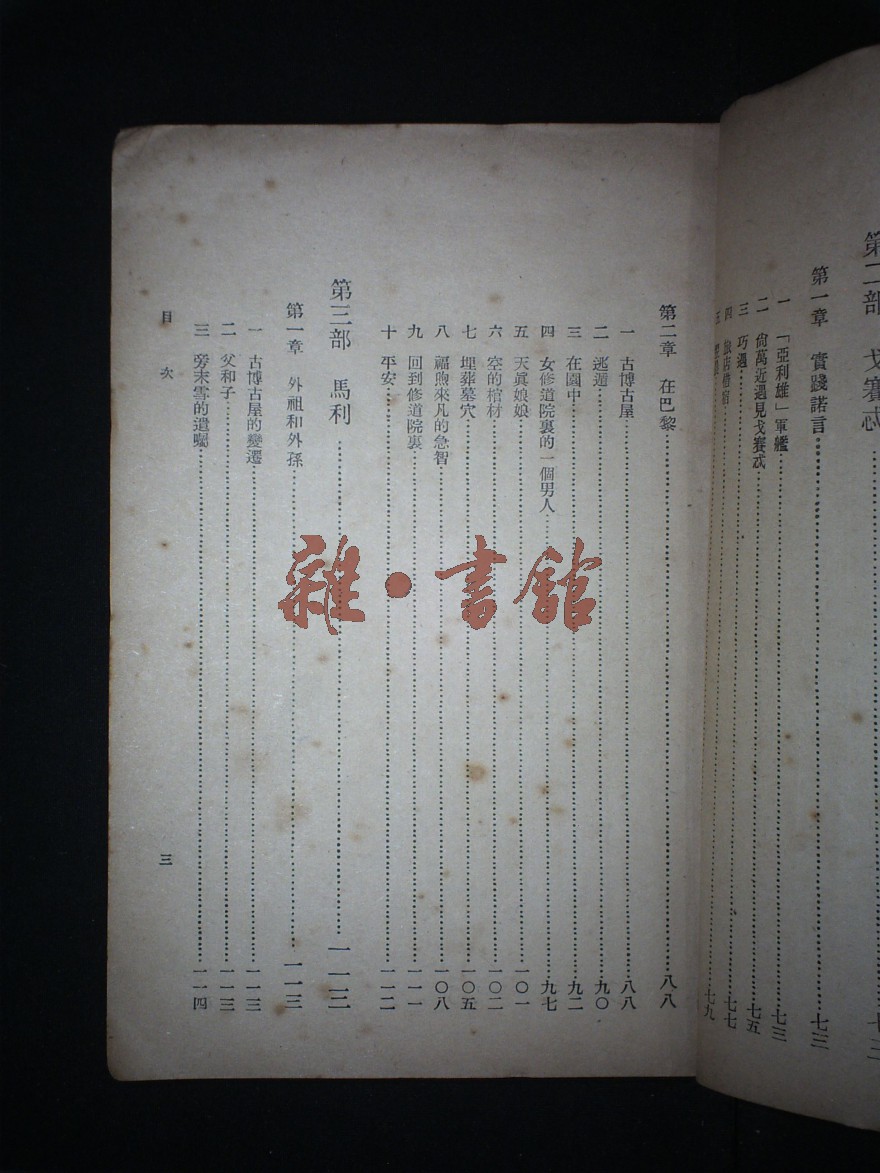 第二部 戈賽忒……七三
第一章 實踐諾言……七三
一 「亞利雄」軍艦……七三
二 尙萬近遇見戈賽忒……七五
三 巧遇……七七
四 旅店借宿……七七
五……七九
第二章 在巴黎……八八
一 古博古屋……八八
二 逃遁……九〇
三 在園中……九二
四 女修道院裏的一個男人……九七
五 天眞娘娘……一〇一
六 空的棺材……一〇二
七 埋葬墓穴……一〇五
八 福煦來凡的急智……一〇八
九 回到修道院裏……一一一
十 平安……一一二
第三部 馬利……一一三
第一章 外祖和外孫……一一三
一 古博古屋的變遷……一一三
二 父和子……一一三
三 旁末雪的遺囑……一一四
目次
三
雜·書館